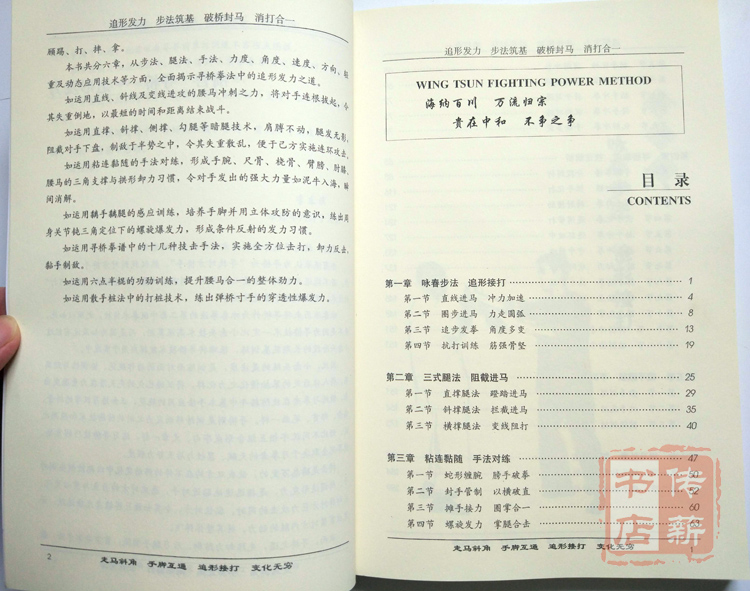 追形发力 步法筑基 破桥封马 消打合一
顿踢、打、摔、拿。
本书共分六章，从步法、腿法、手法、力度、角度、速度、方向、轻
重及动态应用技术等方面，全面揭示寻桥拳法中的追形发力之道。
如运用直线、斜线及变线进攻的腰马冲刺之力，将对手连根拔起，令
其失重倒地，以最短的时间和距离结束战斗。
如运用直撑、斜撑、侧撑、勾腿等暗腿技术，肩膊不动，腿发无影，
阻截对手下盘，制敌于半势之中，令其失重散乱，便于己方实施连环攻击。
如运用粘连黏随的手法对练，形成手腕、尺骨、桡骨、臂膀、肘膝、
腰马的三角支撑与拱形卸力习惯，令对手发出的强大力量如泥牛入海，瞬
间消解。
如运用黐手黐腿的感应训练，培养手脚并用立体攻防的意识，练出周
身关节钝三角定位下的螺旋爆发力，形成条件反射的发力习惯。
如运用寻桥拳谱中的十几种技击手法，实施全方位击打，卸力反击，
黏手制敌。
如运用六点半棍的功劲训练，提升腰马合一的整体劲力。
如运用散手桩法中的打桩技术，练出弹桥寸手的穿透性爆发力。
2
走马斜角 手脚互通 追形接打 变化无穷
追形发力 步法筑基 破桥封马 消打合一
WING TSUN FIGHTING POWER METHOD
海纳百川 万流归宗
贵在中和 不争之争
目录
CONTENTS
第一章 咏春步法 追形接打 ……………… 1
第一节 直线进马 冲力加速 ……………… 4
第二节 圈步进马 力走圆弧 ……………… 8
第三节 追步发拳 角度多变 ……………… 13
第四节 抗打训练 筋强骨坚 ……………… 19
第二章 三式腿法 阻截进马 ……………… 25
第一节 直撑腿法 蹬踏进马 ……………… 29
第二节 斜撑腿法 拦截进马 ……………… 35
第三节 横撑腿法 变线阻打 ……………… 40
第三章 粘连黏随 手法对练 ……………… 47
第一节 蛇形缠腕 膀手破拳 ……………… 50
第二节 封手管制 以横破直 ……………… 52
第三节 摊手接力 圈掌合一 ……………… 60
第四节 螺旋发力 掌腿合击 ……………… 63
走马斜角 手脚互通 追形接打 变化无穷
1
传薪书店